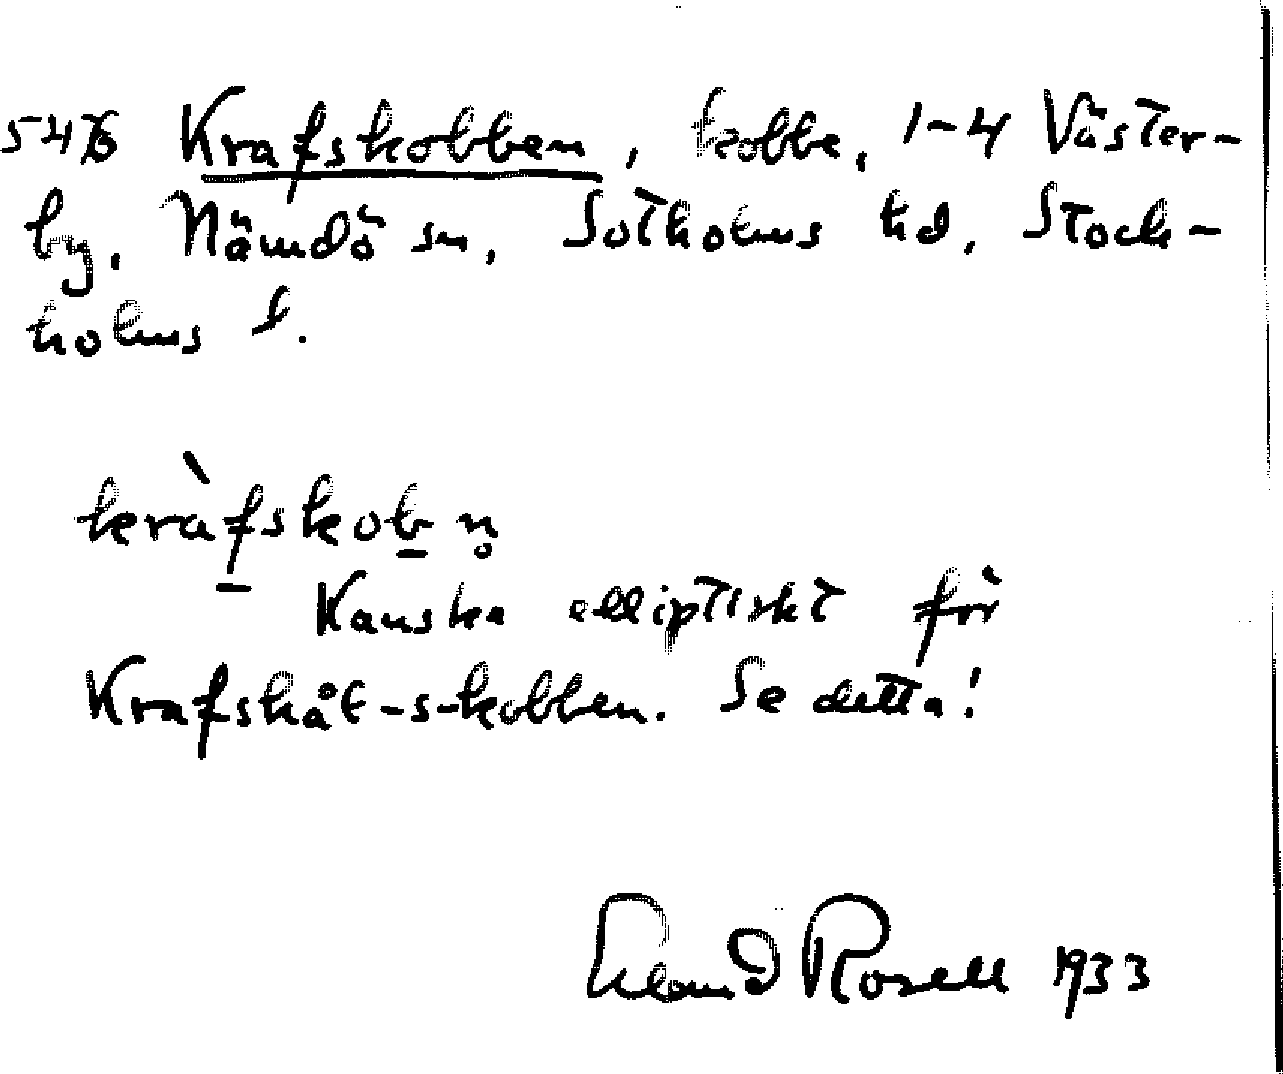 5476 Krafskobben, kobbe, 1-4 Väster-
by, Nämdö sn, Sotholms hd, Stock-
holms l.
kràfskob̲n̥
Kanske elliptiskt för
Krafskåt-s-kobben. Se detta!
Erland Rosell 1933